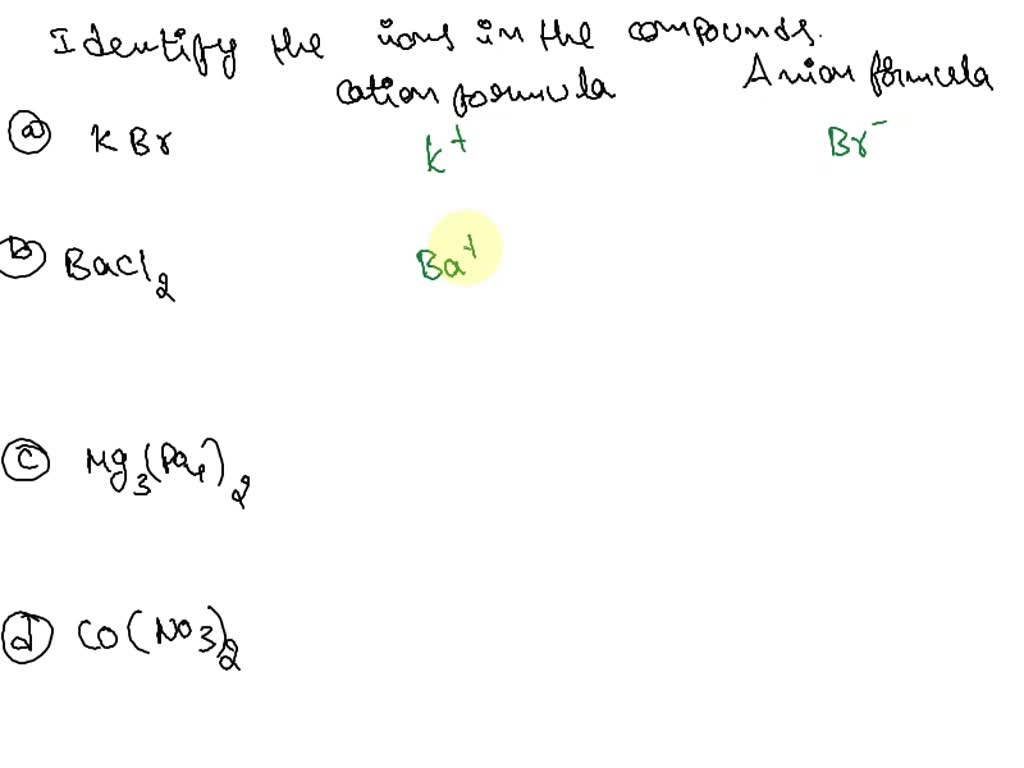 Identify the ions in the compounds.
cation formula Anion formula
(a) KBr K⁺ Br⁻
(b) BaCl₂ Ba⁺
(c) Mg₃(PO₄)₂
(d) Co(NO₃)₂